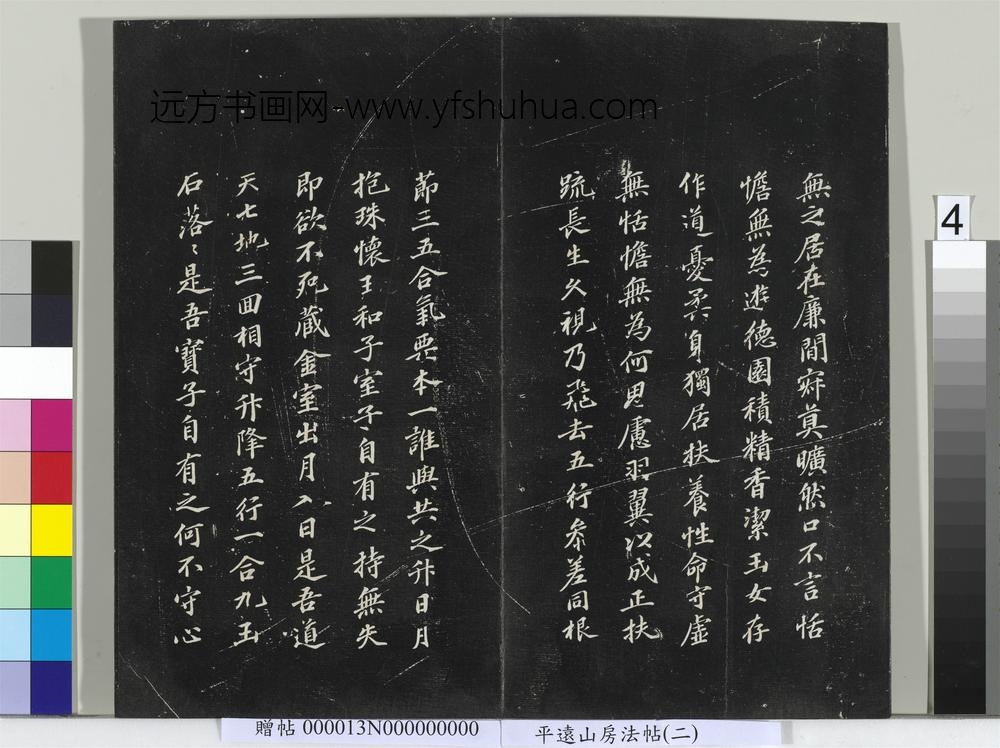 远方书画网-www.yfshuhua.com
無之居在廉間寂真曠然口不言恬
憺無為遊德園積精香潔玉女存
作道憂柔身獨居扶養性命守虛
無恬憺無為何思慮羽翼以成正扶
疏長生久視乃飛去五行参差同根
節三五合氣要本一誰與共之升日月
抱珠懷玉和子室子自有之持無失
即欲不死藏金室出月入日是吾道
天七地三回相守升降五行一合九玉
石落〻是吾寶子自有之何不守心
4
贈帖 000013N000000000
平遠山房法帖(二)